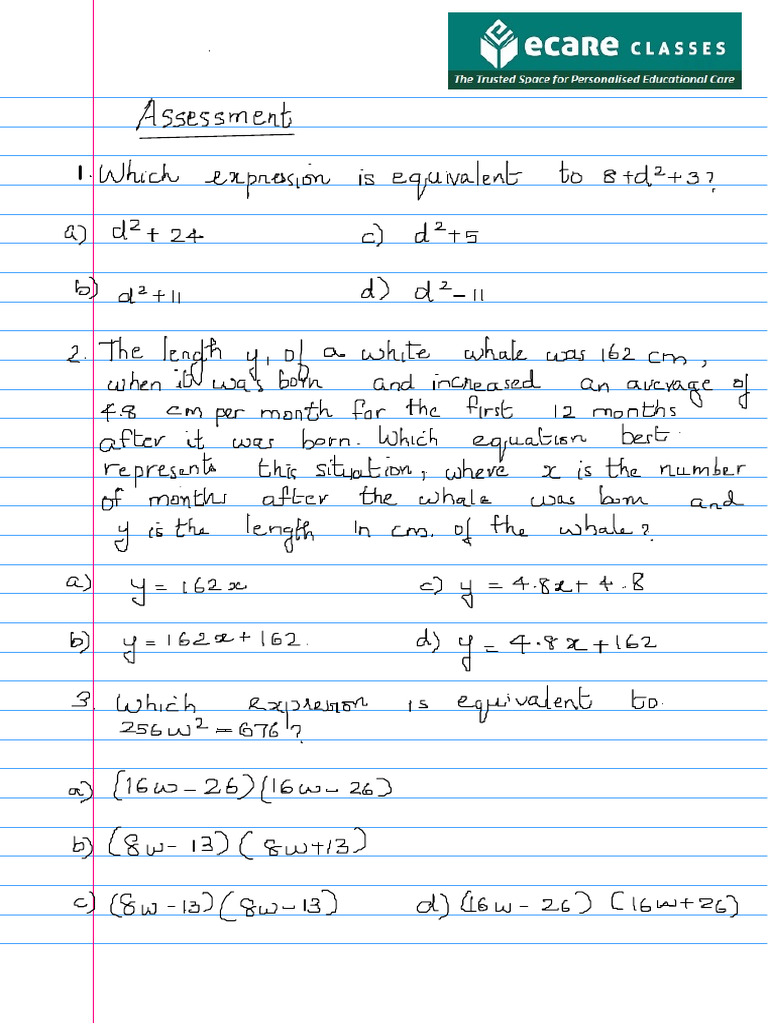 ecare CLASSES
The Trusted Space for Personalised Educational Care
Assessment
1. Which expression is equivalent to 8+d²+3?
a) d²+24 c) d²+5
b) d²+11 d) d²-11
2. The length y, of a white whale was 162 cm,
when it was born and increased an average of
4.8 cm per month for the first 12 months
after it was born. Which equation best
represents this situation, where x is the number
of months after the whale was born and
y is the length in cm. of the whale?
a) y = 162x c) y = 4.8x+4.8
b) y = 162x+162. d) y = 4.8x+162
3. Which expression is equivalent to
256w²-676?
a) (16w-26)(16w-26)
b) (8w-13)(8w+13)
c) (8w-13)(8w-13) d) (16w-26)(16w+26)